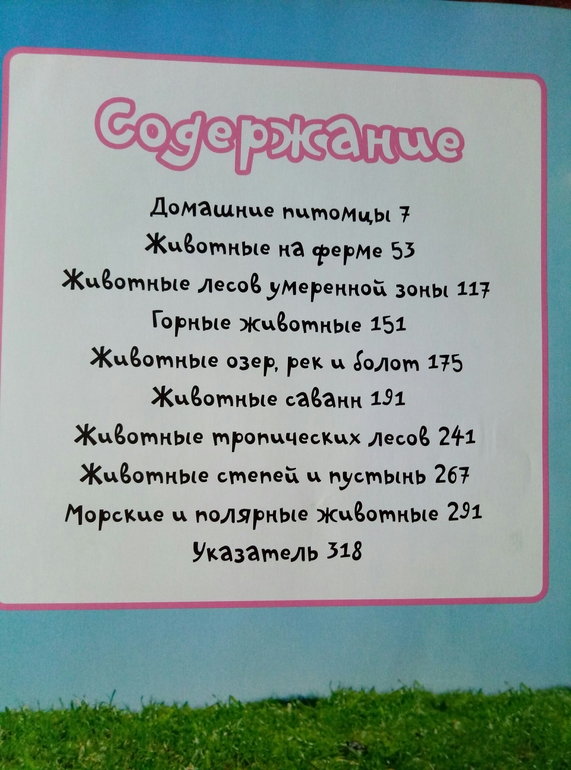 Содержание
Домашние питомцы 7
Животные на ферме 53
Животные лесов умеренной зоны 117
Горные животные 151
Животные озер, рек и болот 175
Животные саванн 191
Животные тропических лесов 241
Животные степей и пустынь 267
Морские и полярные животные 291
Указатель 318